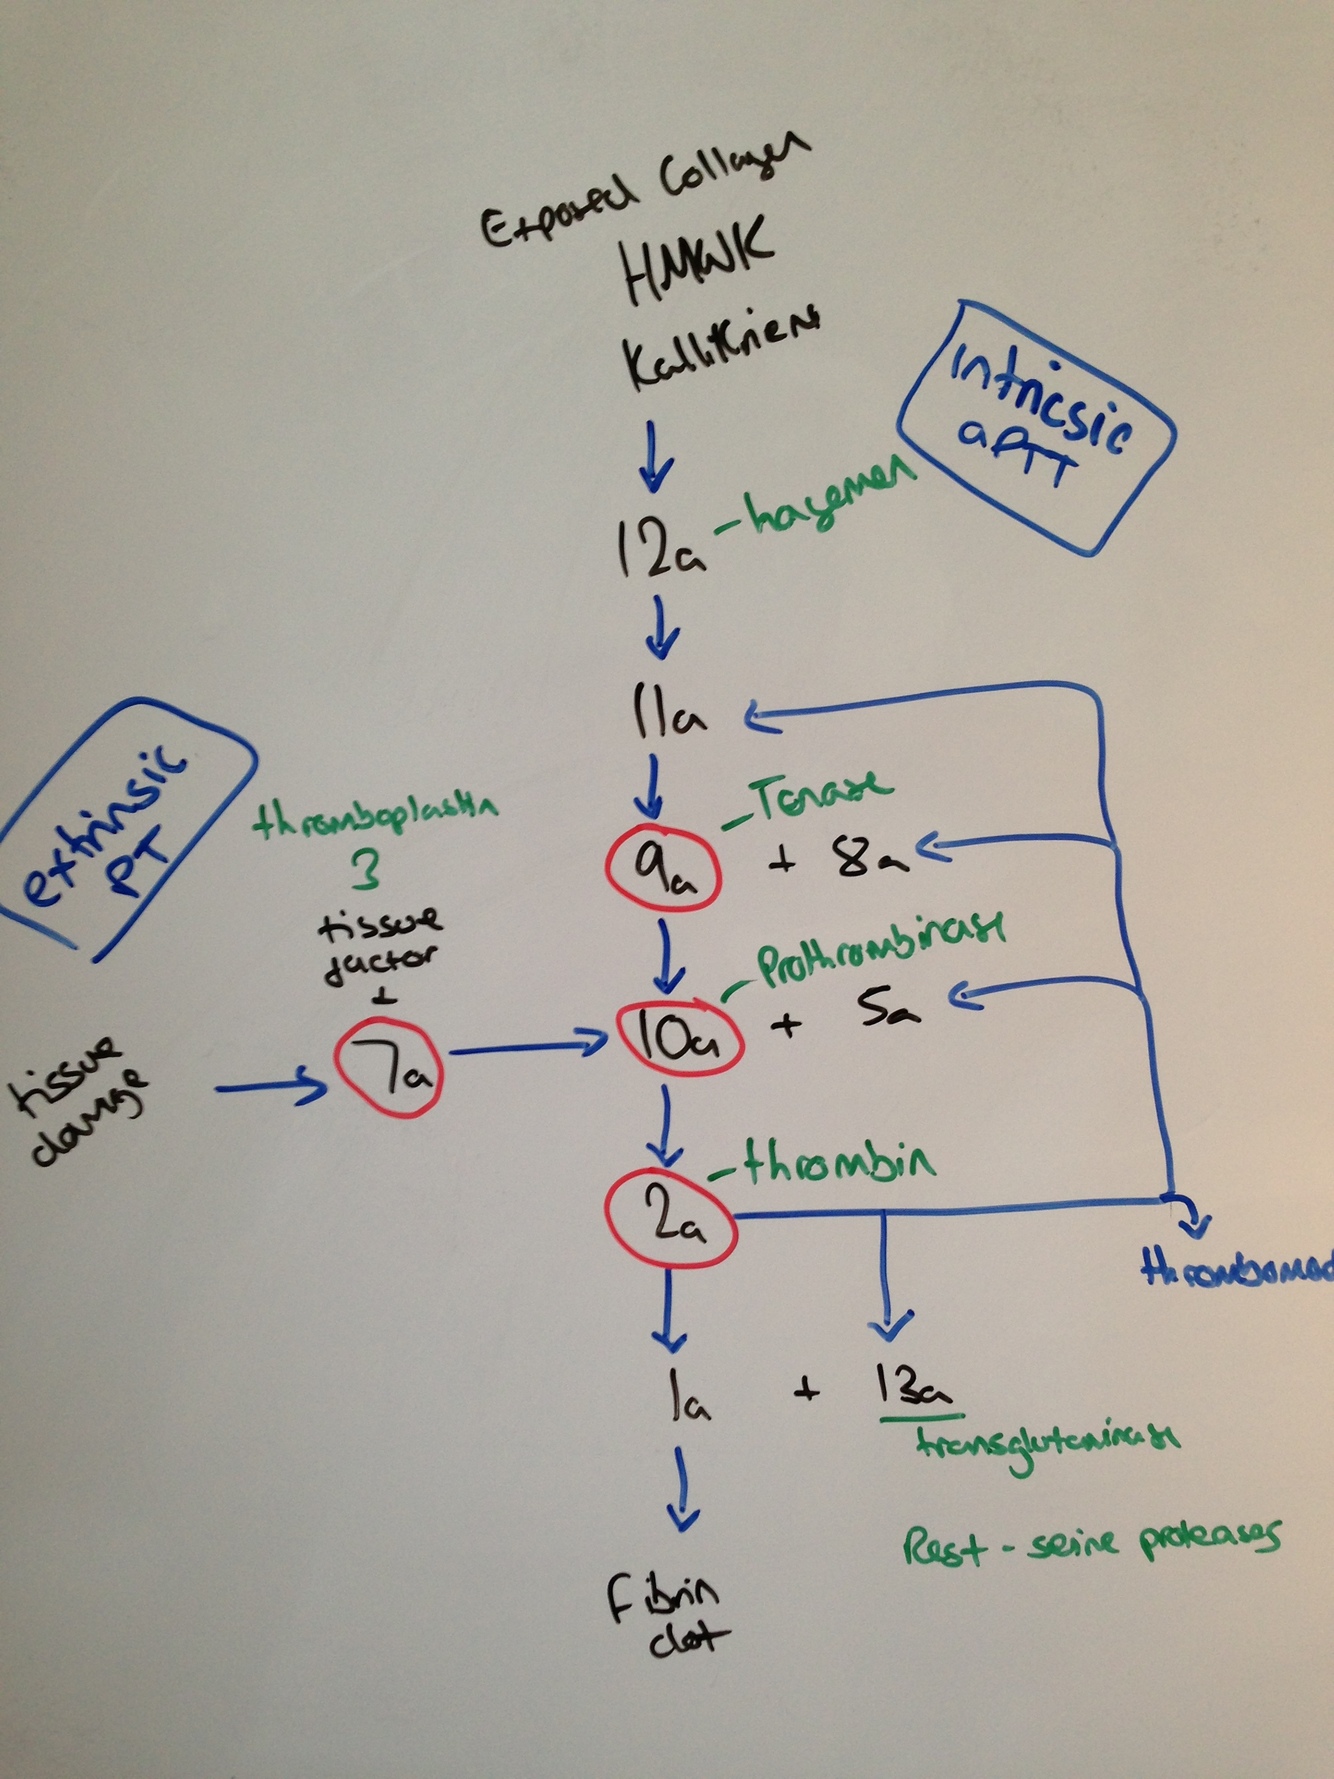 Exposed Collagen
HMWK
Kallikriens
intricsic
aPTT
12a - hagemen
11a
extrinsic
PT
thromboplastin
3
tissue
factor
+
7a
tissue
damge
- Tenase
9a + 8a
- Prothrombinase
10a + 5a
- thrombin
2a
thrombomod
1a + 13a
transglutaminase
Rest - seine proteases
Fibrin
clot